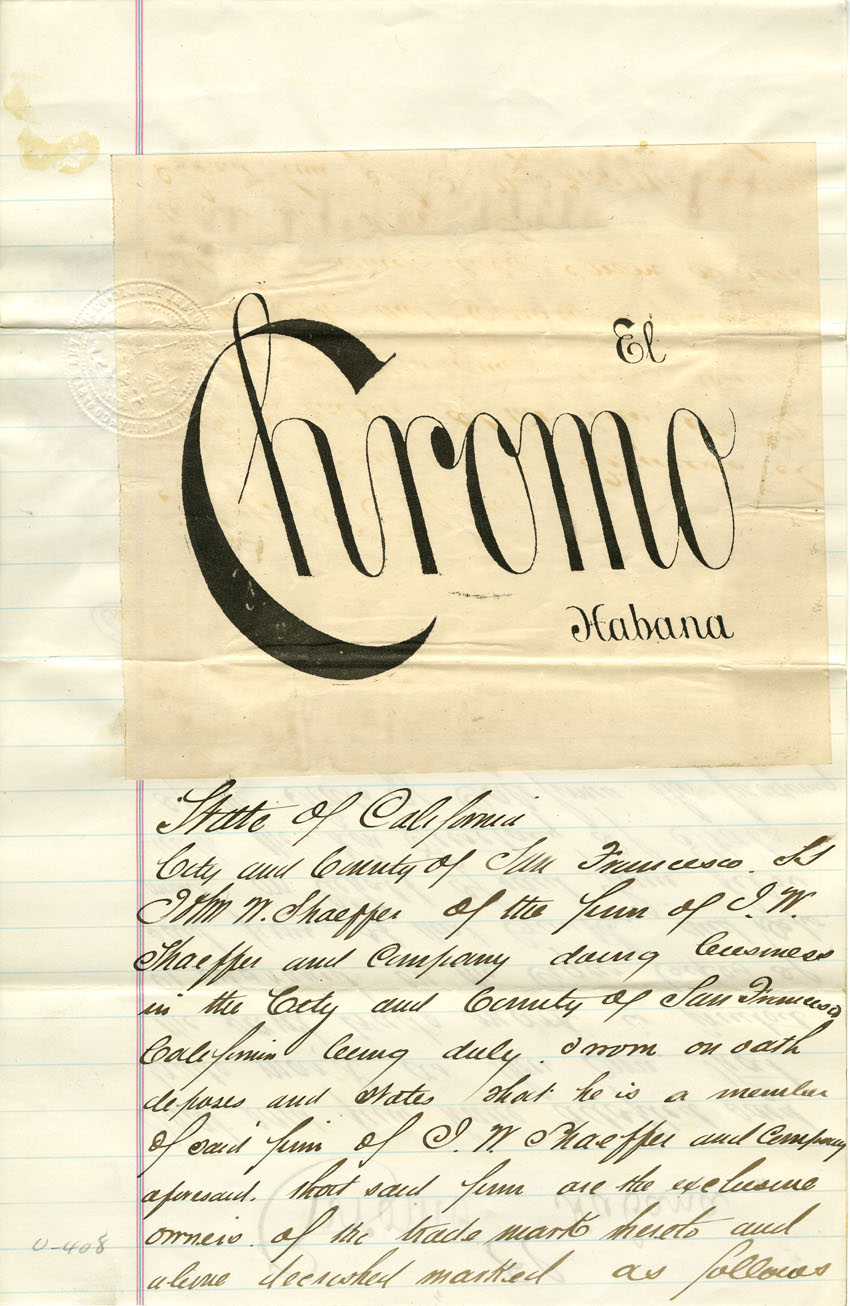 El
Chromo
Habana
State of California
City and County of San Francisco. SS
John W. Shaeffer of the firm of J. W.
Shaeffer and Company doing business
in the City and County of San Francisco
California being duly sworn on oath
deposes and states that he is a member
of said firm of J. W. Shaeffer and Company
aforesaid. that said firm are the exclusive
owners of the trade mark hereto and
above described marked as follows
0-408